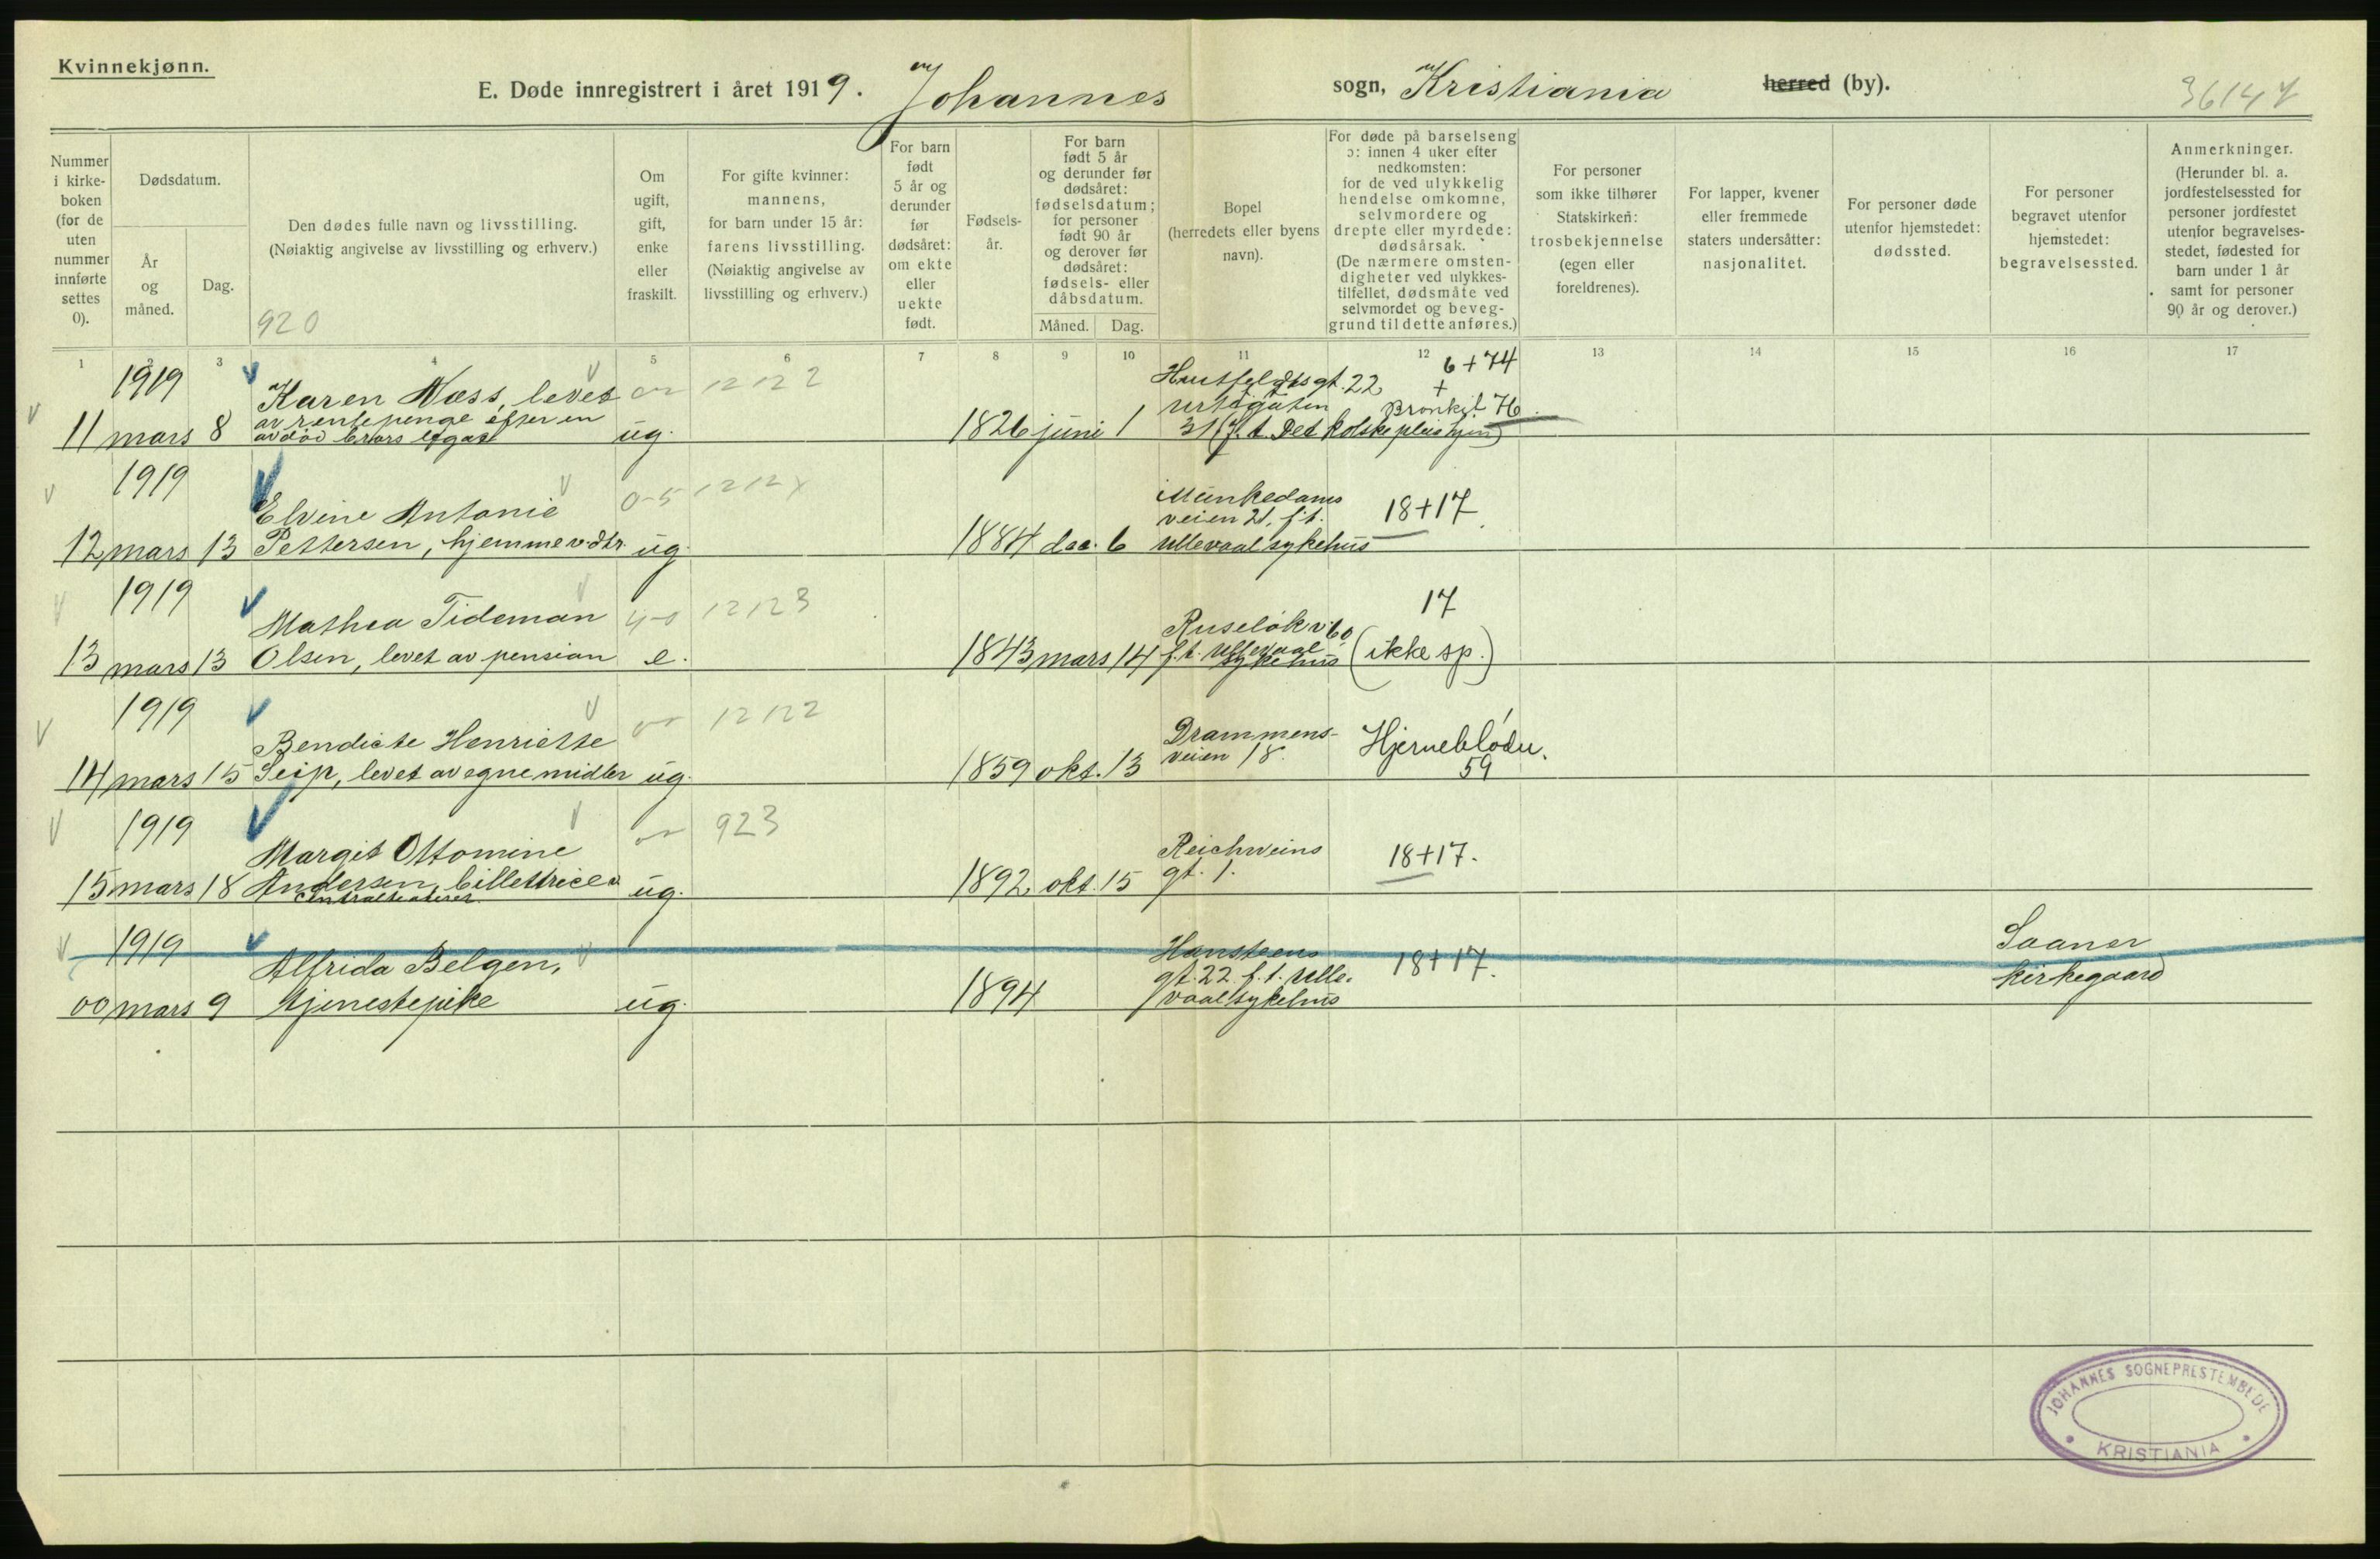 Kvinnekjønn.
E. Døde innregistrert i året 1919. Johannes sogn, Kristiania herred (by).
36147
Nummer i kirke-boken (for de uten nummer innførte settes 0).
Dødsdatum.
År og måned.
Dag.
Den dødes fulle navn og livsstilling.
(Nøiaktig angivelse av livsstilling og erhverv.)
920
Om ugift, gift, enke eller fraskilt.
For gifte kvinner: mannens, for barn under 15 år: farens livsstilling. (Nøiaktig angivelse av livsstilling og erhverv.)
For barn født 5 år og derunder før dødsåret: om ekte eller uekte født.
Fødsels-år.
For barn født 5 år og derunder før dødsåret: fødselsdatum; for personer født 90 år og derover før dødsåret: fødsels- eller dåbsdatum.
Måned.
Dag.
Bopel (herredets eller byens navn).
For døde på barselseng ɔ: innen 4 uker efter nedkomsten: for de ved ulykkelig hendelse omkomne, selvmordere og drepte eller myrdede: dødsårsak. (De nærmere omsten-digheter ved ulykkes-tilfellet, dødsmåte ved selvmordet og beveg-grund til dette anføres.)
For personer som ikke tilhører Statskirken: trosbekjennelse (egen eller foreldrenes).
For lapper, kvener eller fremmede staters undersåtter: nasjonalitet.
For personer døde utenfor hjemstedet: dødssted.
For personer begravet utenfor hjemstedet: begravelsessted.
Anmerkninger. (Herunder bl. a. jordfestelsessted for personer jordfestet utenfor begravelses-stedet, fødested for barn under 1 år samt for personer 90 år og derover.)
1 2 3 4 5 6 7 8 9 10 11 12 13 14 15 16 17
1919 Karen Næss, levet 12122 22 6+74
av rentepenge efter en Bronkit 76
11 mars 8 avdød brors legat ug. 1826 juni 1 31 (f.t. Det pleiehjem)
1919 0-5 1212
Elvine Antonie Munkedams
veien 21, f.t. 18+17
12 mars 13 Pettersen, hjemmev. dtr. ug. 1884 dec. 6 Ullevaal sykehus
1919 12123 17
Mathea Tideman Ruseløkv. 60
13 mars 13 Olsen, levet av pension e. 1843 mars 14 f.t. Ullevaal sykehus (ikke sp.)
1919 12122
Bendicte Henriette Drammens-
14 mars 15 Seip, levet av egne midler ug. 1859 okt. 13 veien 18. Hjerneblødn.
59
1919 923
Margit Ottomine Reichweins 18+17.
15 mars 18 Andersen, billettrice v. ug. 1892 okt. 15 gt. 1.
Centralteateret
1919 Alfrida Belgen, Hansteens 18+17. Saaner
gt. 22 f.t. Ulle- kirkegaard
00 mars 9 tjenestepike ug. 1894 vaal sykehus
JOHANNES SOGNEPRESTEMBEDE
KRISTIANIA